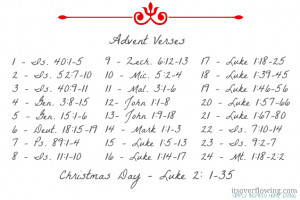 Advent Verses
1 - Is. 40:1-5
2 - Is. 52:7-10
3 - Is. 40:9-11
4 - Gen. 3:8-15
5 - Gen. 15:1-6
6 - Deut. 18:15-19
7 - Ps. 89:1-4
8 - Is. 11:1-10
9 - Zech. 6:12-13
10 - Mic. 5:2-4
11 - Mal. 3:1-6
12- John 1:1-8
13- John 1:9-18
14 - Mark 1:1-3
15 - Luke 1:5-13
16 - Luke 1:14-17
17 - Luke 1:18-25
18 - Luke 1:39-45
19 - Luke 1:46-56
20 - Luke 1:57-66
21 - Luke 1:67-80
22 - Is. 7:10-14
23 - Is. 9:2-7
24 - Mt. 1:18-22
Christmas Day - Luke 2: 1-35
itsoverflowing.com
SIMPLY INSPIRED HOME LIVING